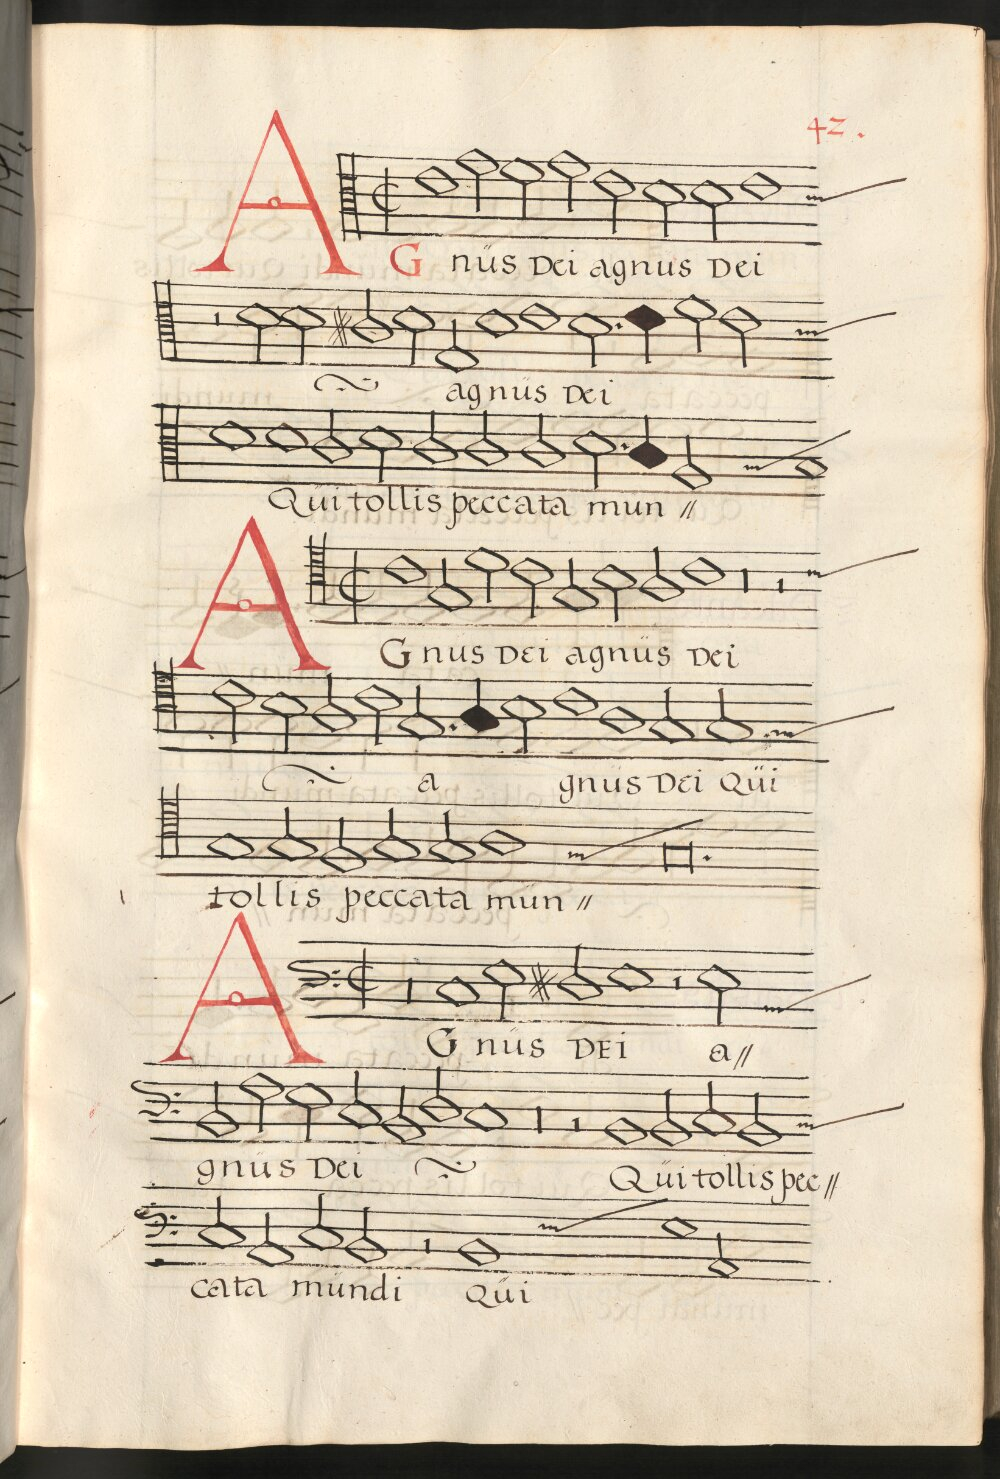 42.
AGnus Dei agnus Dei
agnus Dei
Qui tollis peccata mun //
AGnus Dei agnus Dei
a gnus Dei Qui
tollis peccata mun //
AGnus DEi a //
gnus Dei Qui tollis pec //
cata mundi Qui